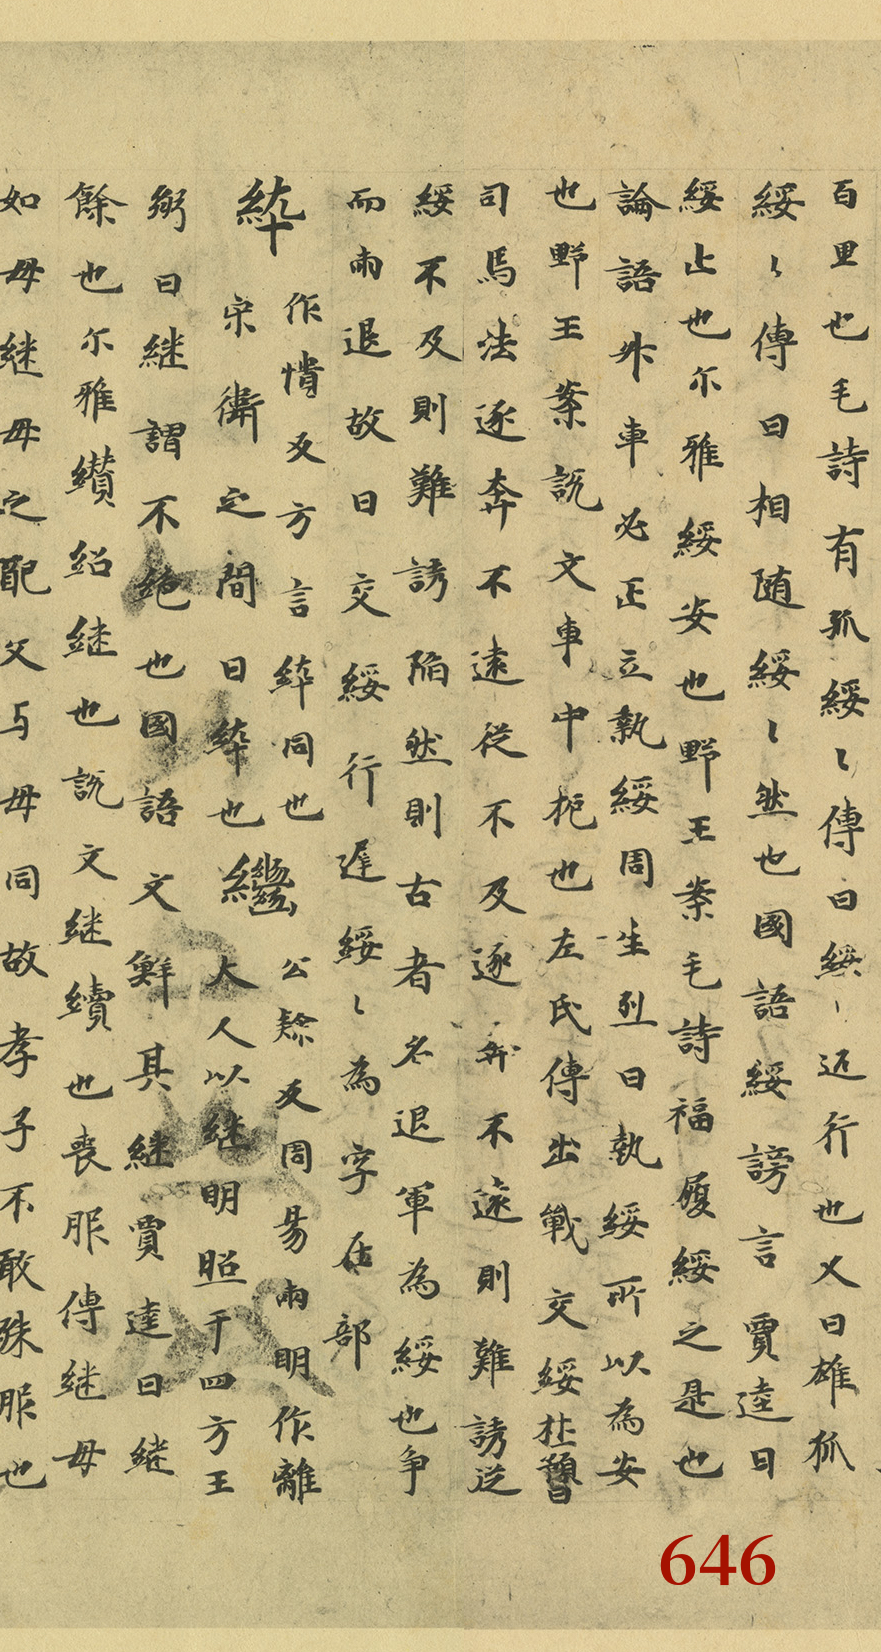 百里也毛詩有狐綏〻傳曰綏〻近行也又曰雄狐
綏〻傳曰相随綏〻然也國語綏謗言賈逵曰
綏止也尓雅綏安也野王案毛詩福履綏之是也
論語升車必正立執綏周生烈曰執綏所以為安
也野王案説文車中把也左氏傳出戰交綏杜預曰
司馬法逐奔不遠從不及逐奔不遠則難誘從
綏不及則難誘陥然則古者名退軍為綏也争
而兩退故曰交綏行遟綏〻為字在部
綷 作憒反方言綷同也
宋衛之間曰綷也
繼 公𦁊反周昜兩明作離
大人以継明照于四方王
弼曰継謂不絶也國語文鮮其継賈逵曰継
餘也尓雅纉紹継也説文継續也喪服傳継母
如母継母之配父与母同故孝子不敢殊服也
646